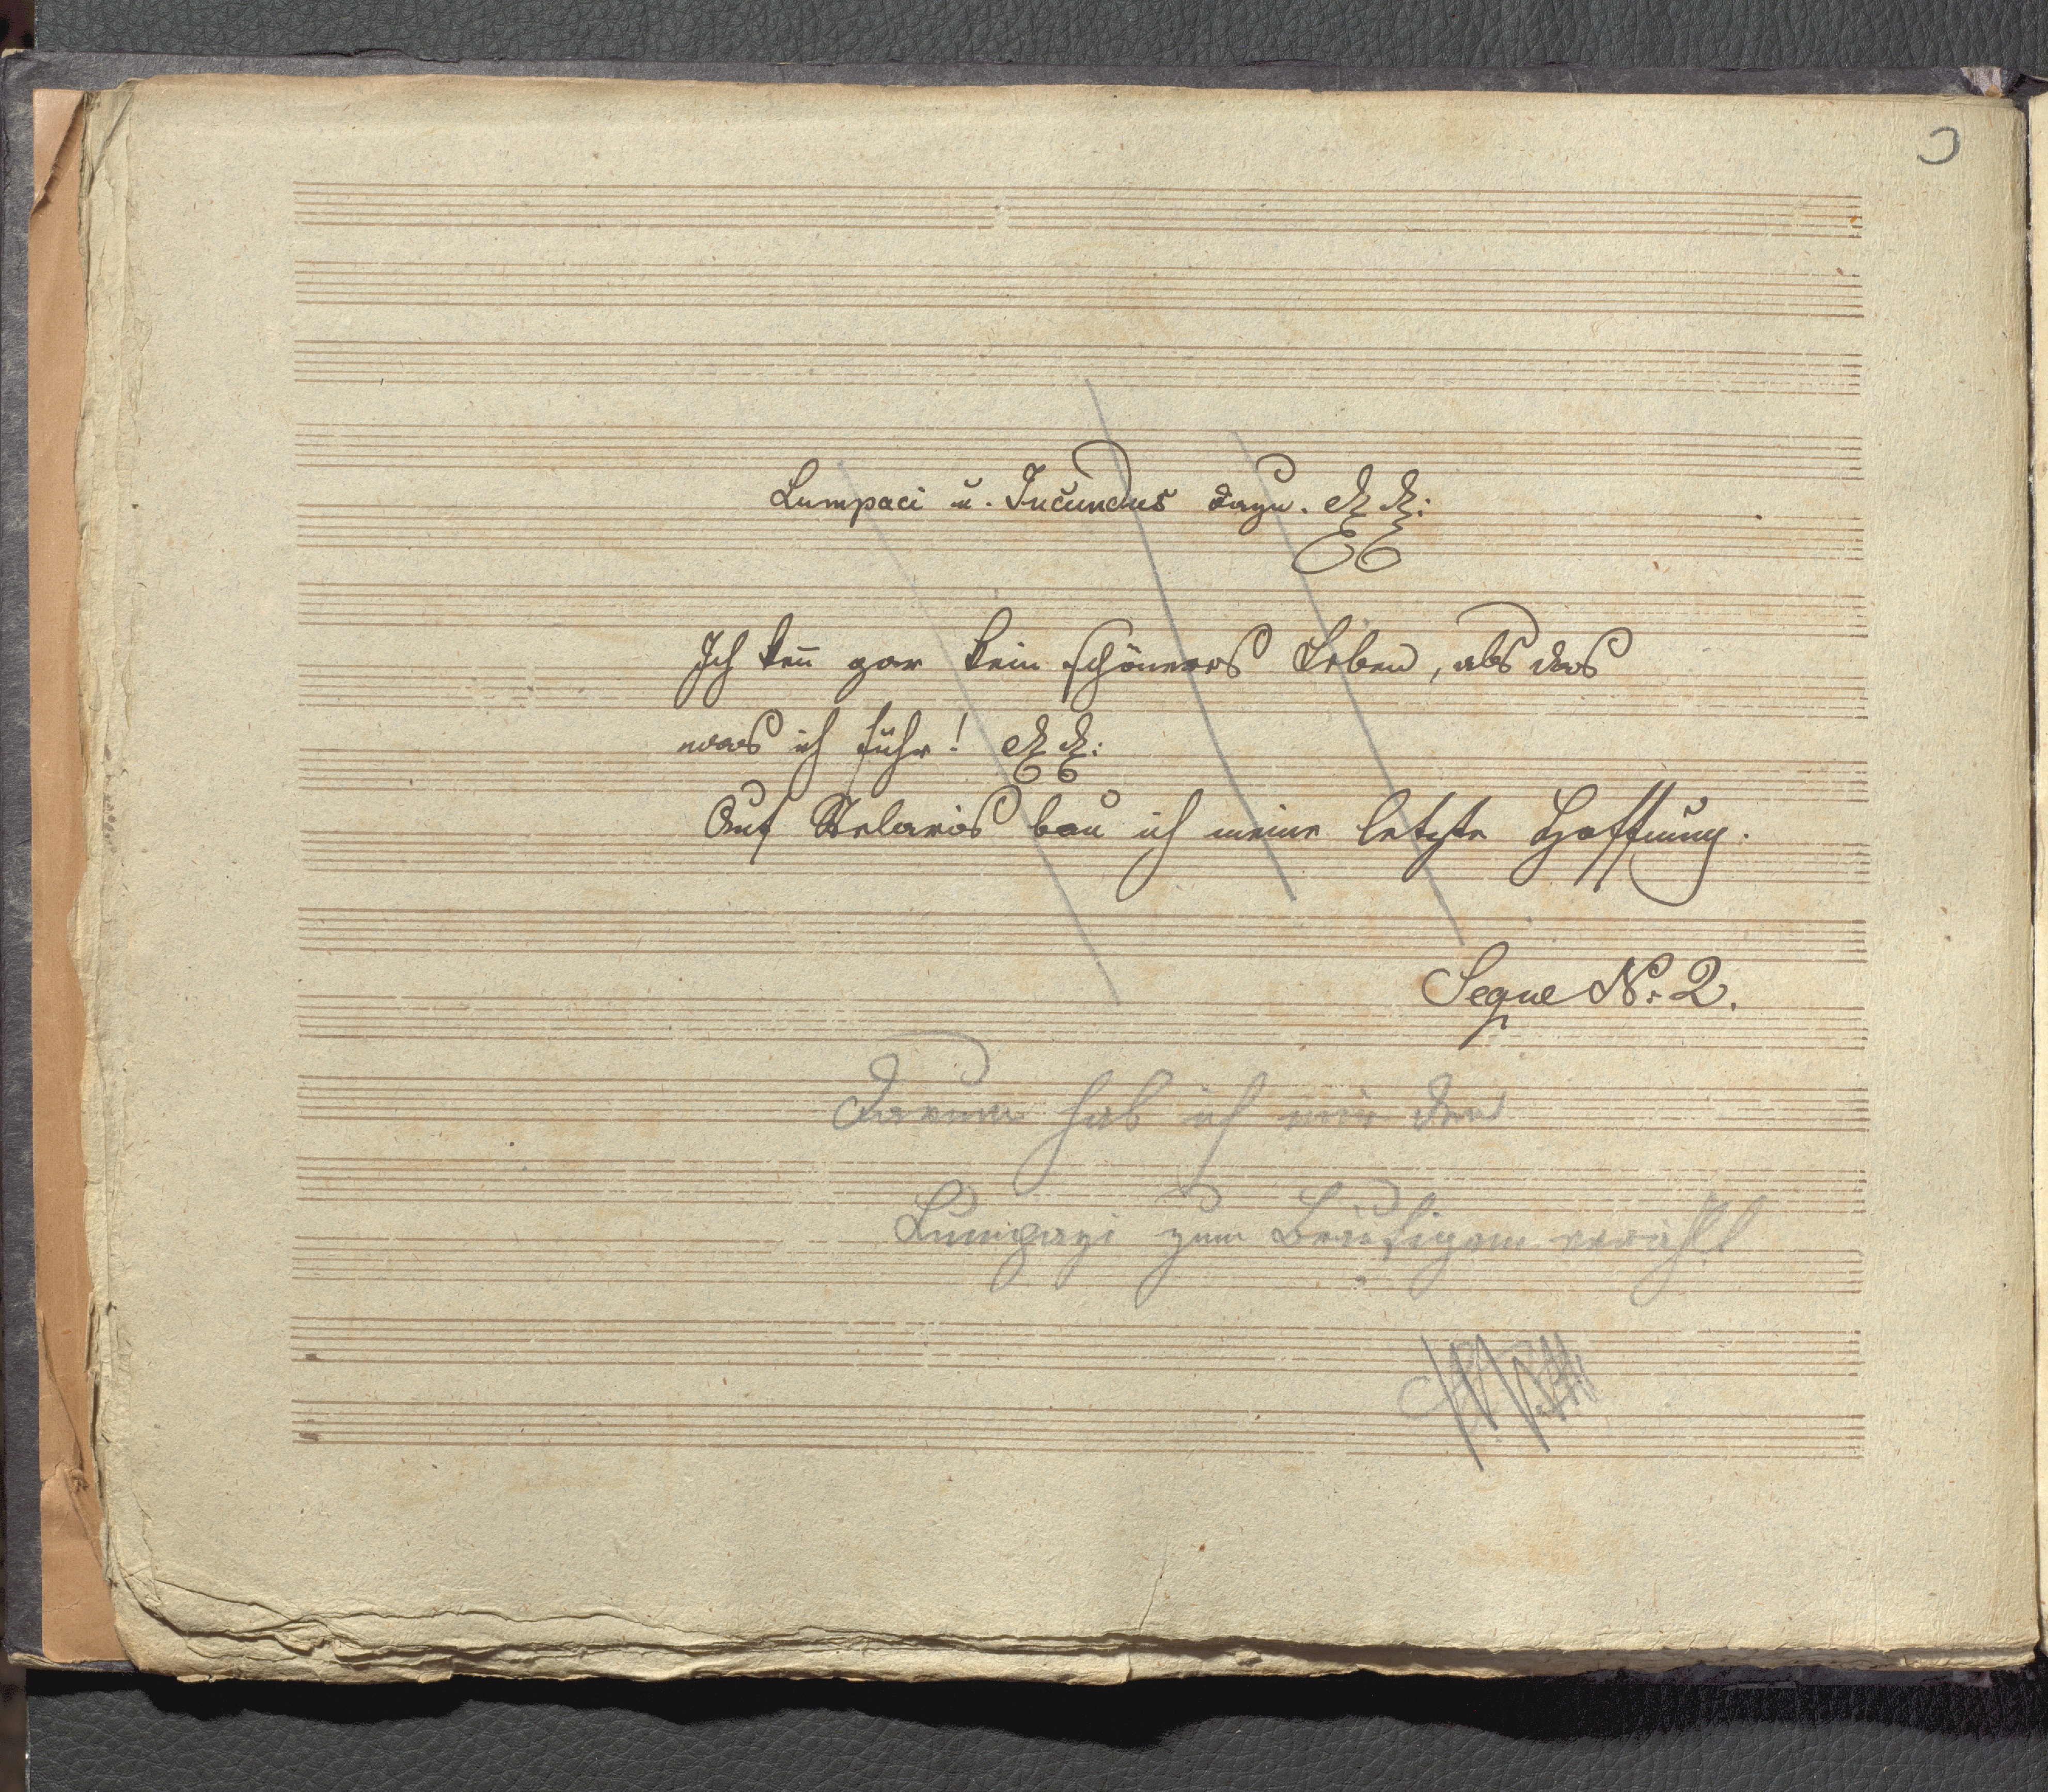 Lumpaci u. Jucundus dazu. etz etz:
Ich keñ gar kein schöneres Leben, als das
was ich führ! etz etz:
Auf Stelaris bau ich meine letzte Hoffnung.
Segue No: 2.
Darum hab ich mir den
Lumpazi zum Bräutigam erwählt